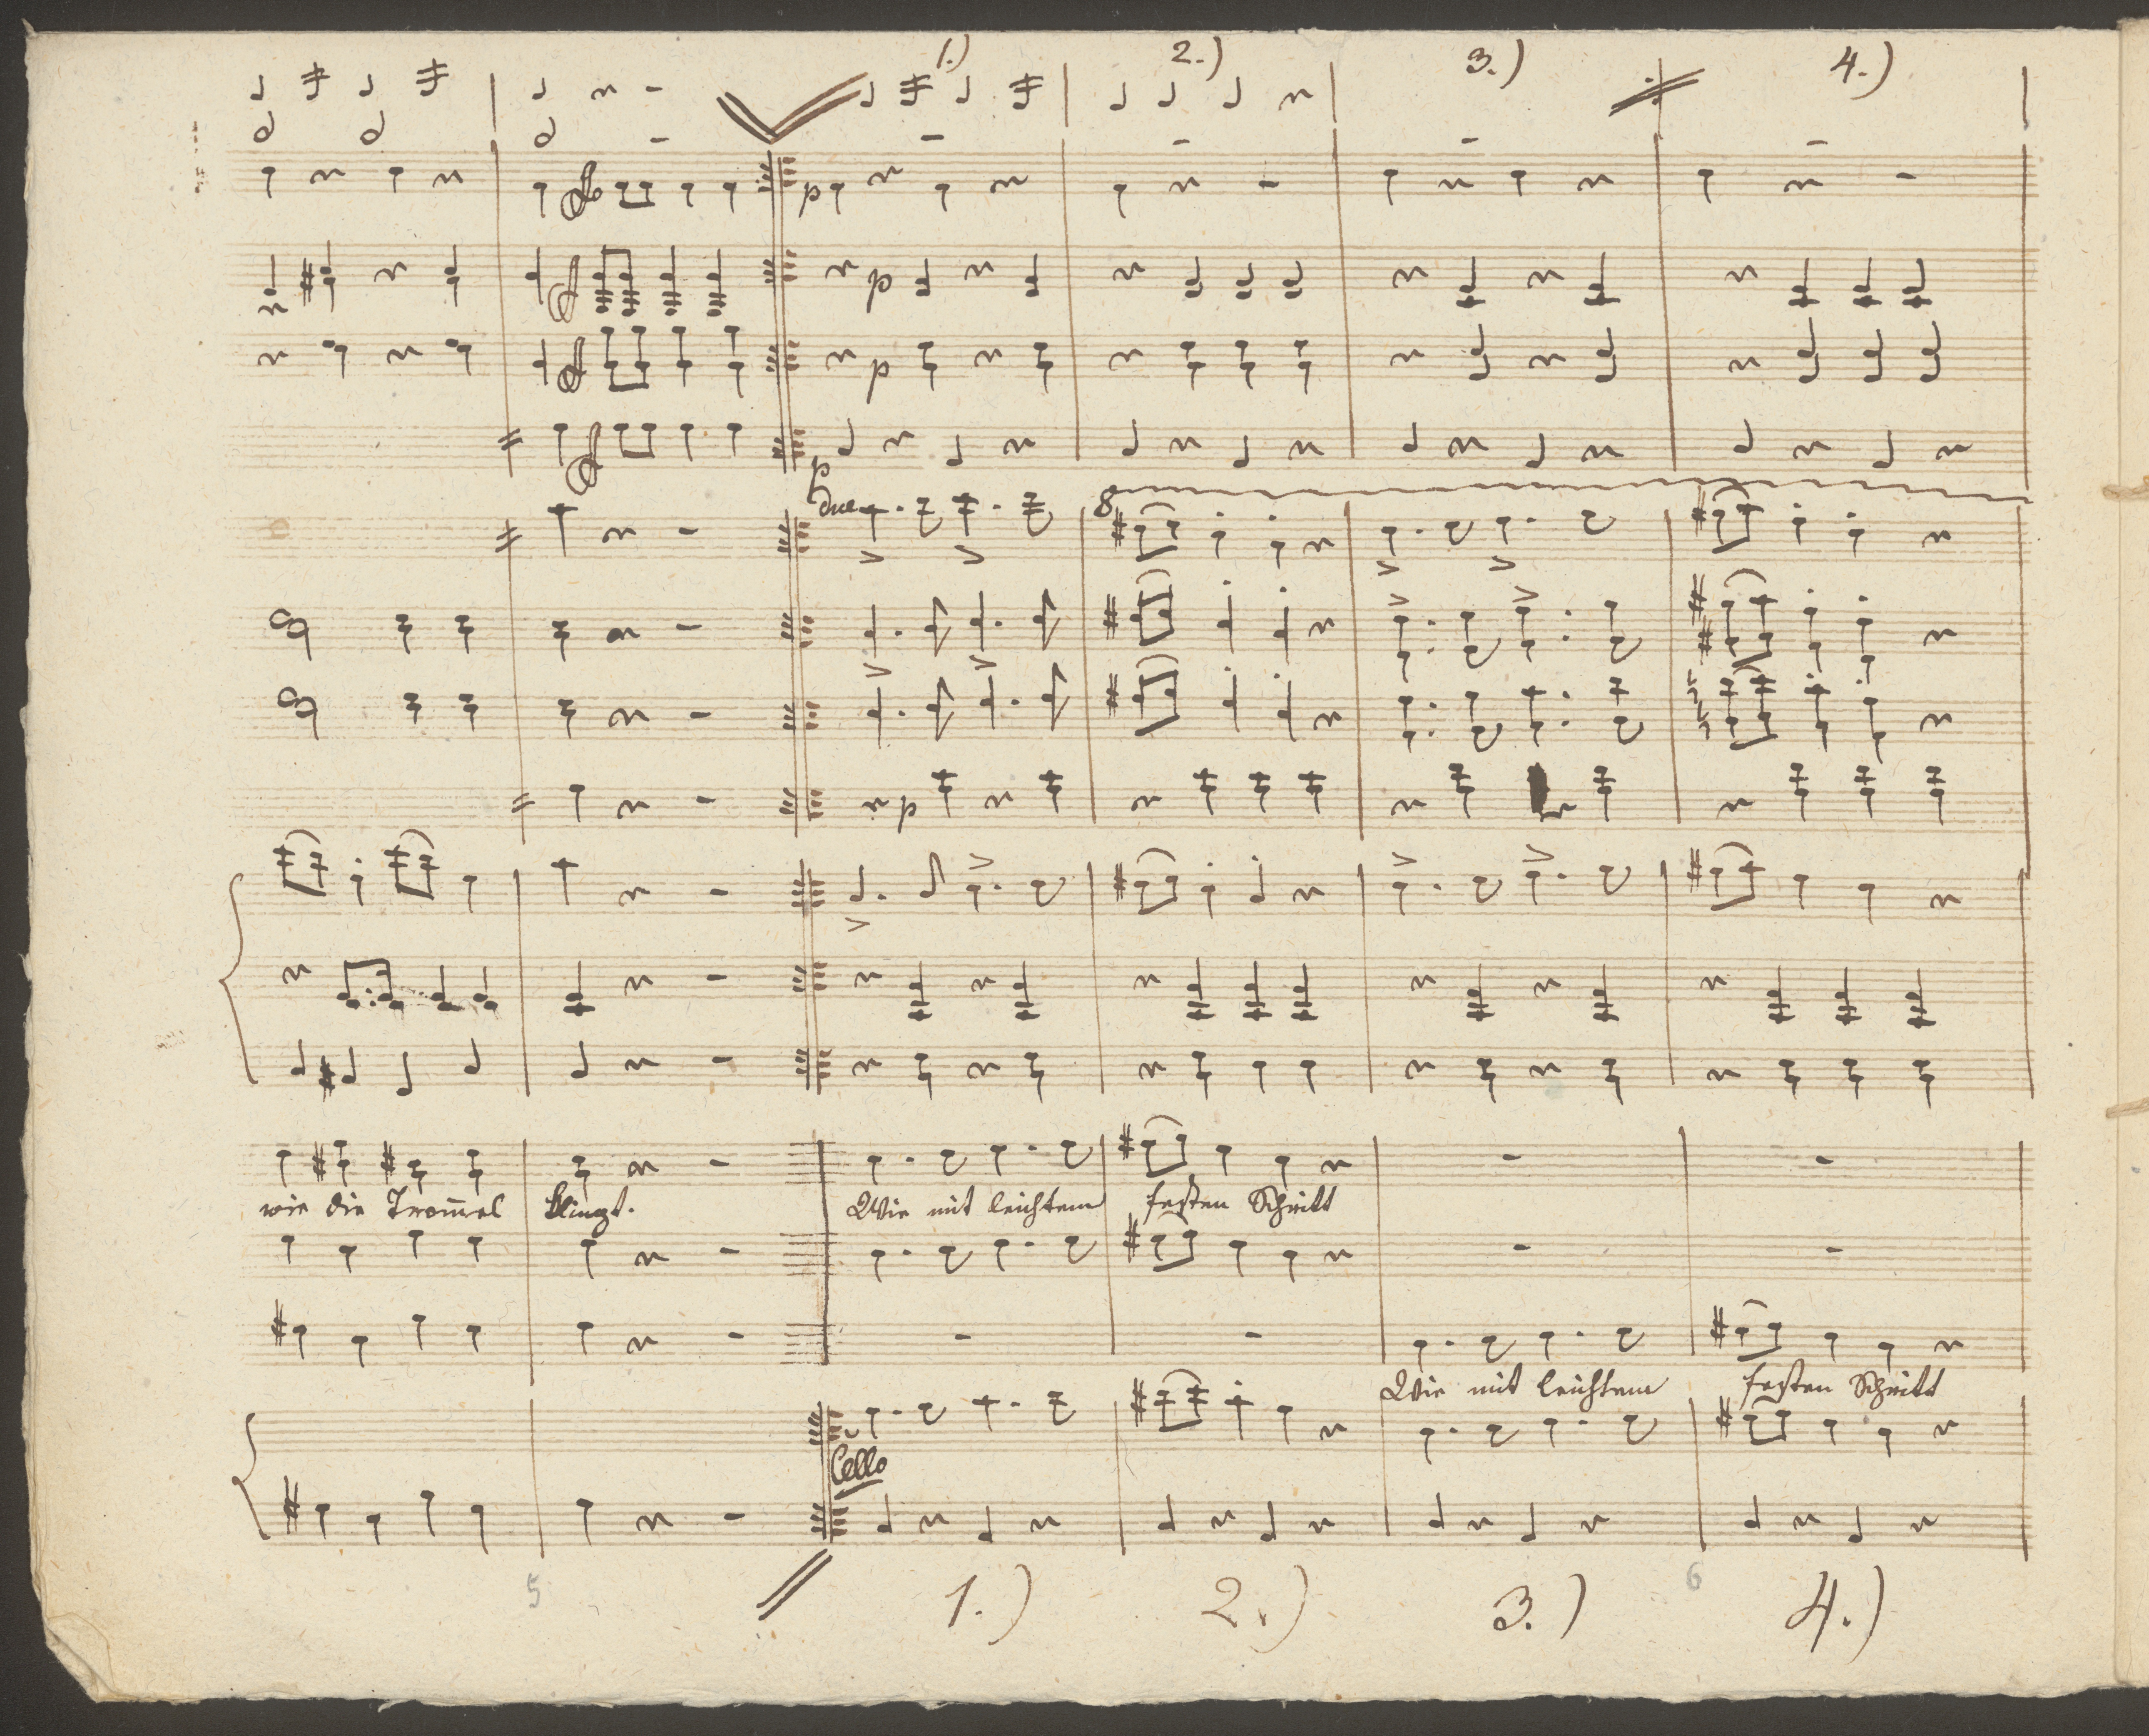 1.) 2.) 3.) 4.)
p
p
p
p
due
8
p
wie die Trom̄el klingt. Wie mit leichtem festen Schritt
Wie mit leichtem festen Schritt
Cello
5 6
1.) 2.) 3.) 4.)